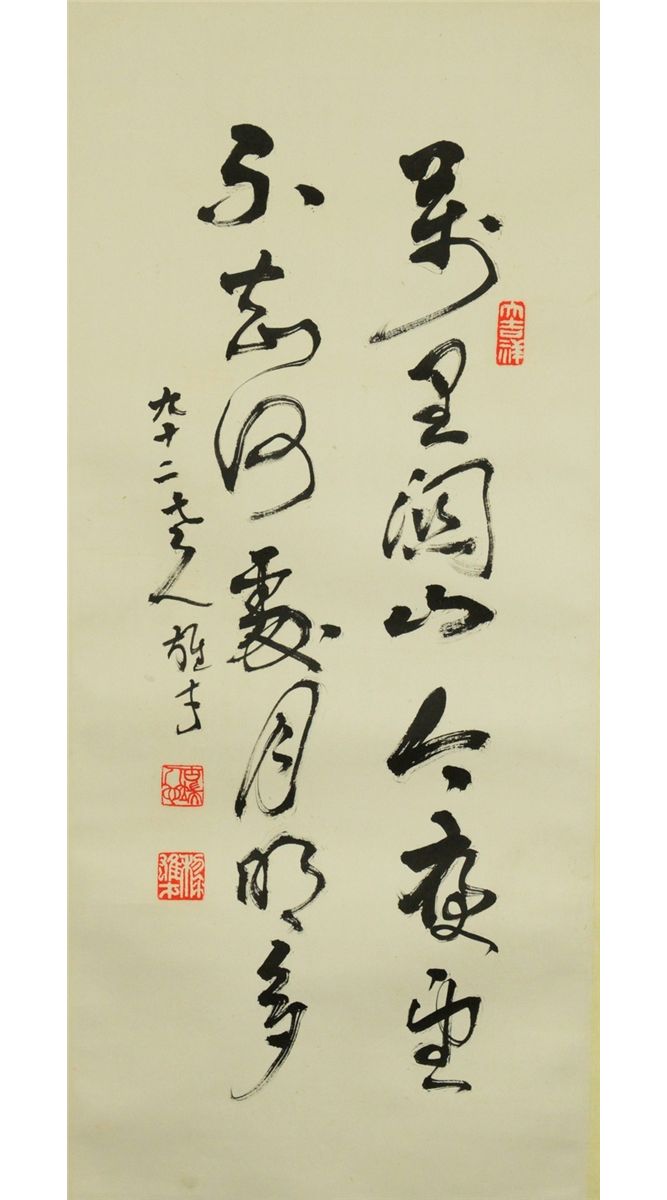 萬里關山今夜望
大吉祥
不知何處月明多
九十二老人雄本